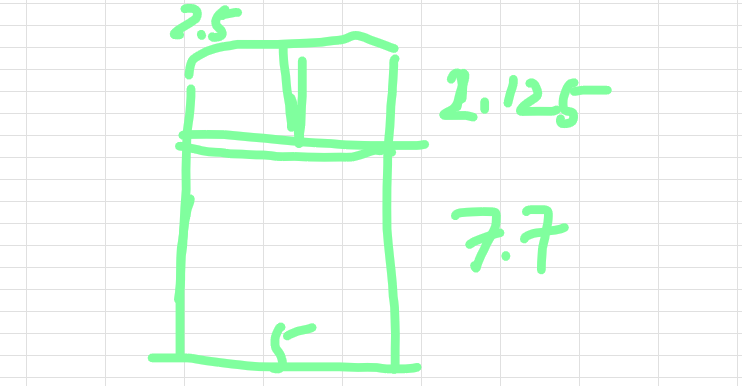 2.5
2.125
7.7
5